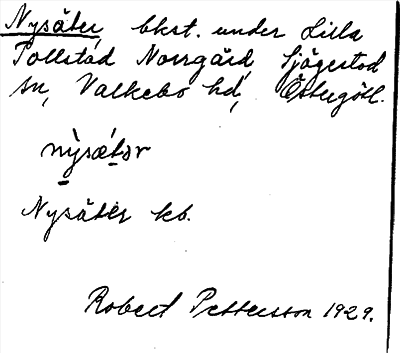 Nysäter, bkst. under Lilla
Tollstad Norrgård, Sjögestad
sn, Valkebo hd, Östergötl.
nỳsǽtər
Nysäter kb.
Robert Pettersson 1929.